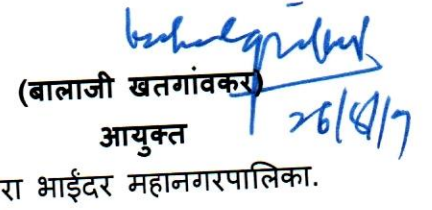 (बालाजी खतगांवकर)
आयुक्त
रा भाईंदर महानगरपालिका.